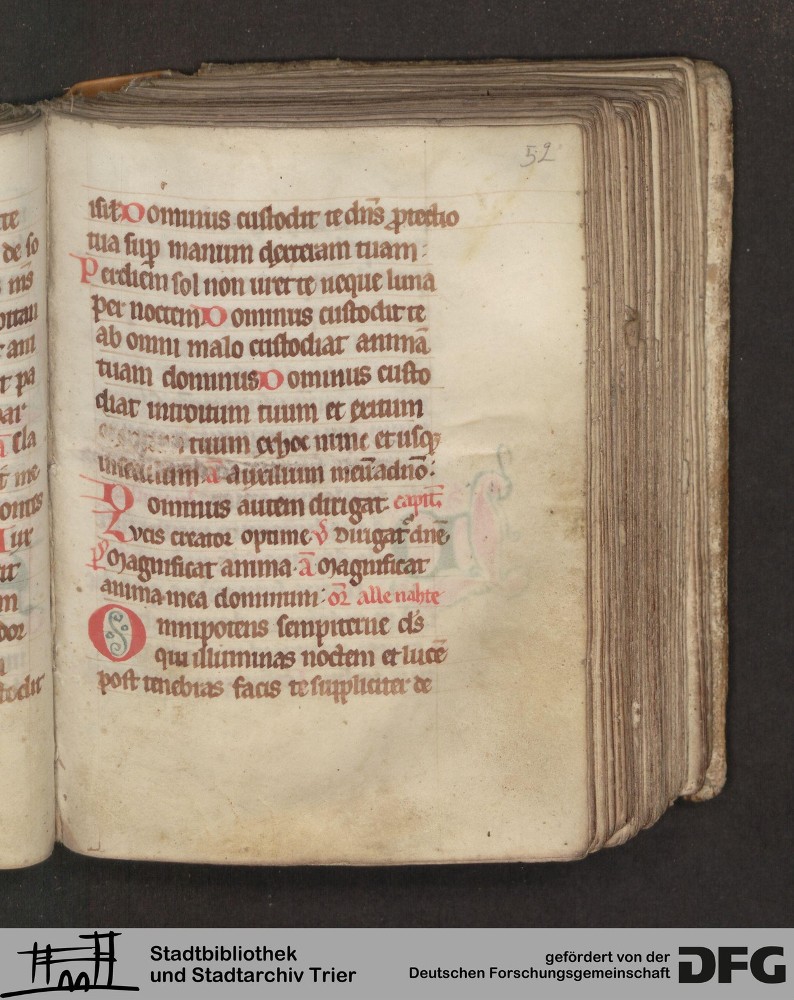 52
isrl Dominus custodit te dn̄s ꝓtectio
tua suꝑ manum dexteram tuam:
Per diem sol non uret te neque luna
per noctem Dominus custodit te
ab omni malo custodiat animā
tuam dominus Dominus custo
diat introitum tuum et exitum
tuum ex hoc nunc et usqꝫ
in seculum a᷎ auxilium meū a dn̄o:
Dominus autem dirigat capit̄
Lucis creator optime ℣ Dirigat᷑ dn̄e
p̄s Magnificat anima ā Magnificat
anima mea dominum: oꝝ alle nahte
Omnipotens sempiterne ds̄
qui illuminas noctem et lucē
post tenebras facis te suppliciter de
te
de so
ms̄
am
t pa
ar
ā cla
t me
ontes
Iur
m
dor
todit
Stadtbibliothek
und Stadtarchiv Trier
gefördert von der
Deutschen Forschungsgemeinschaft
DFG